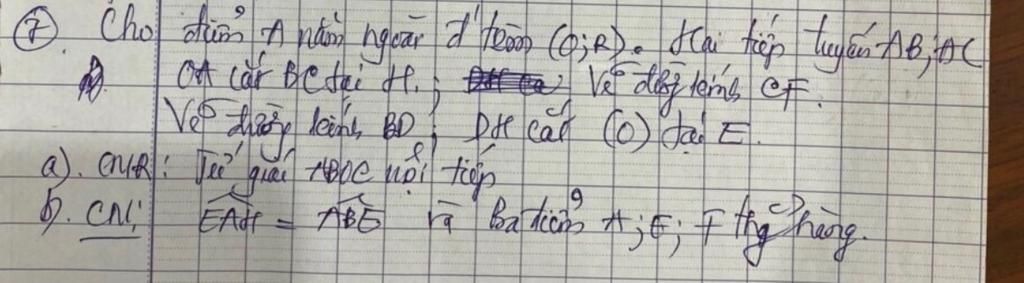 ⑦. Cho điểm A nằm ngoài đ' tròn (O;R). Hai tiếp tuyến AB; AC
OA cắt BC tại H.; Vẽ đg kính CF.
Vẽ đường kính BD; DH cắt (O) tại E.
a). CMR: Tứ giác ABOC nội tiếp
b. CM: EAH = ABE và Ba điểm A; E; F thg hàng.